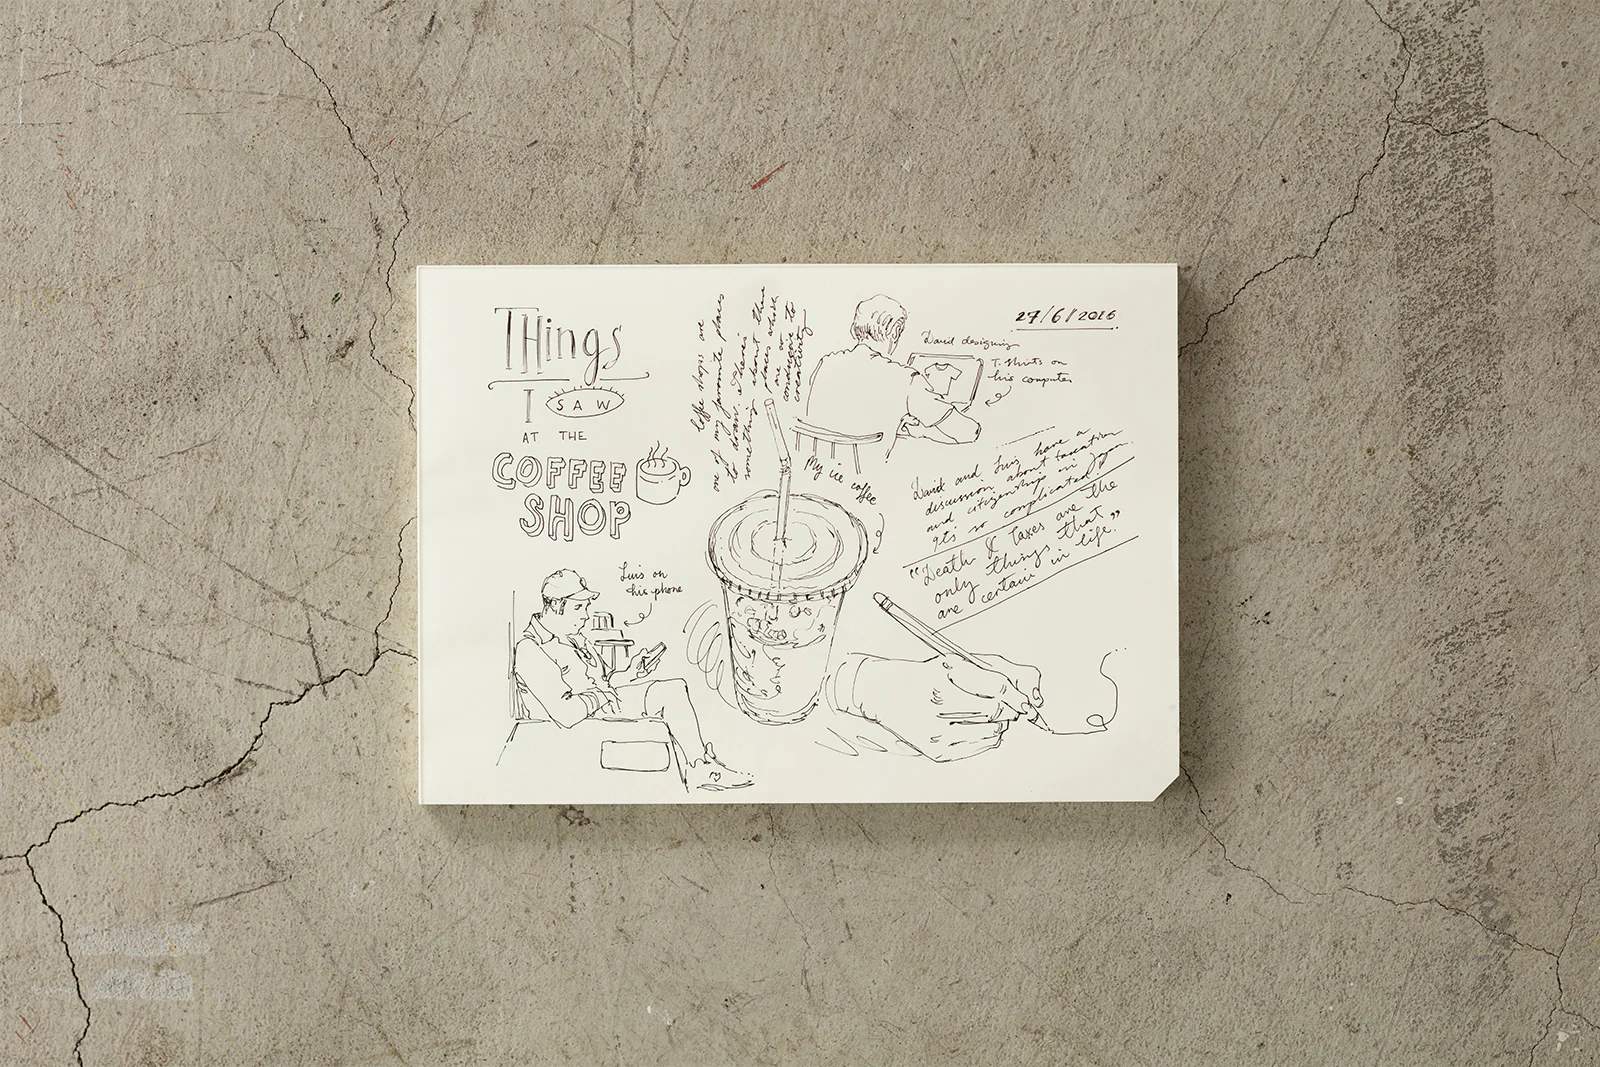 THings
I SAW
AT THE
COFFEE
SHOP
Coffee shops are
one of my favorite places
to draw.
something about these
places which
are so
conducive to
creativity
27/6/2016
David designing
T-Shirts on
his computer
My ice coffee
David and Luis have a
discussion about taxation
and citizenship in Japan.
It's so complicated!
"Death & Taxes are the
only things that
are certain in life."
Luis on
his phone